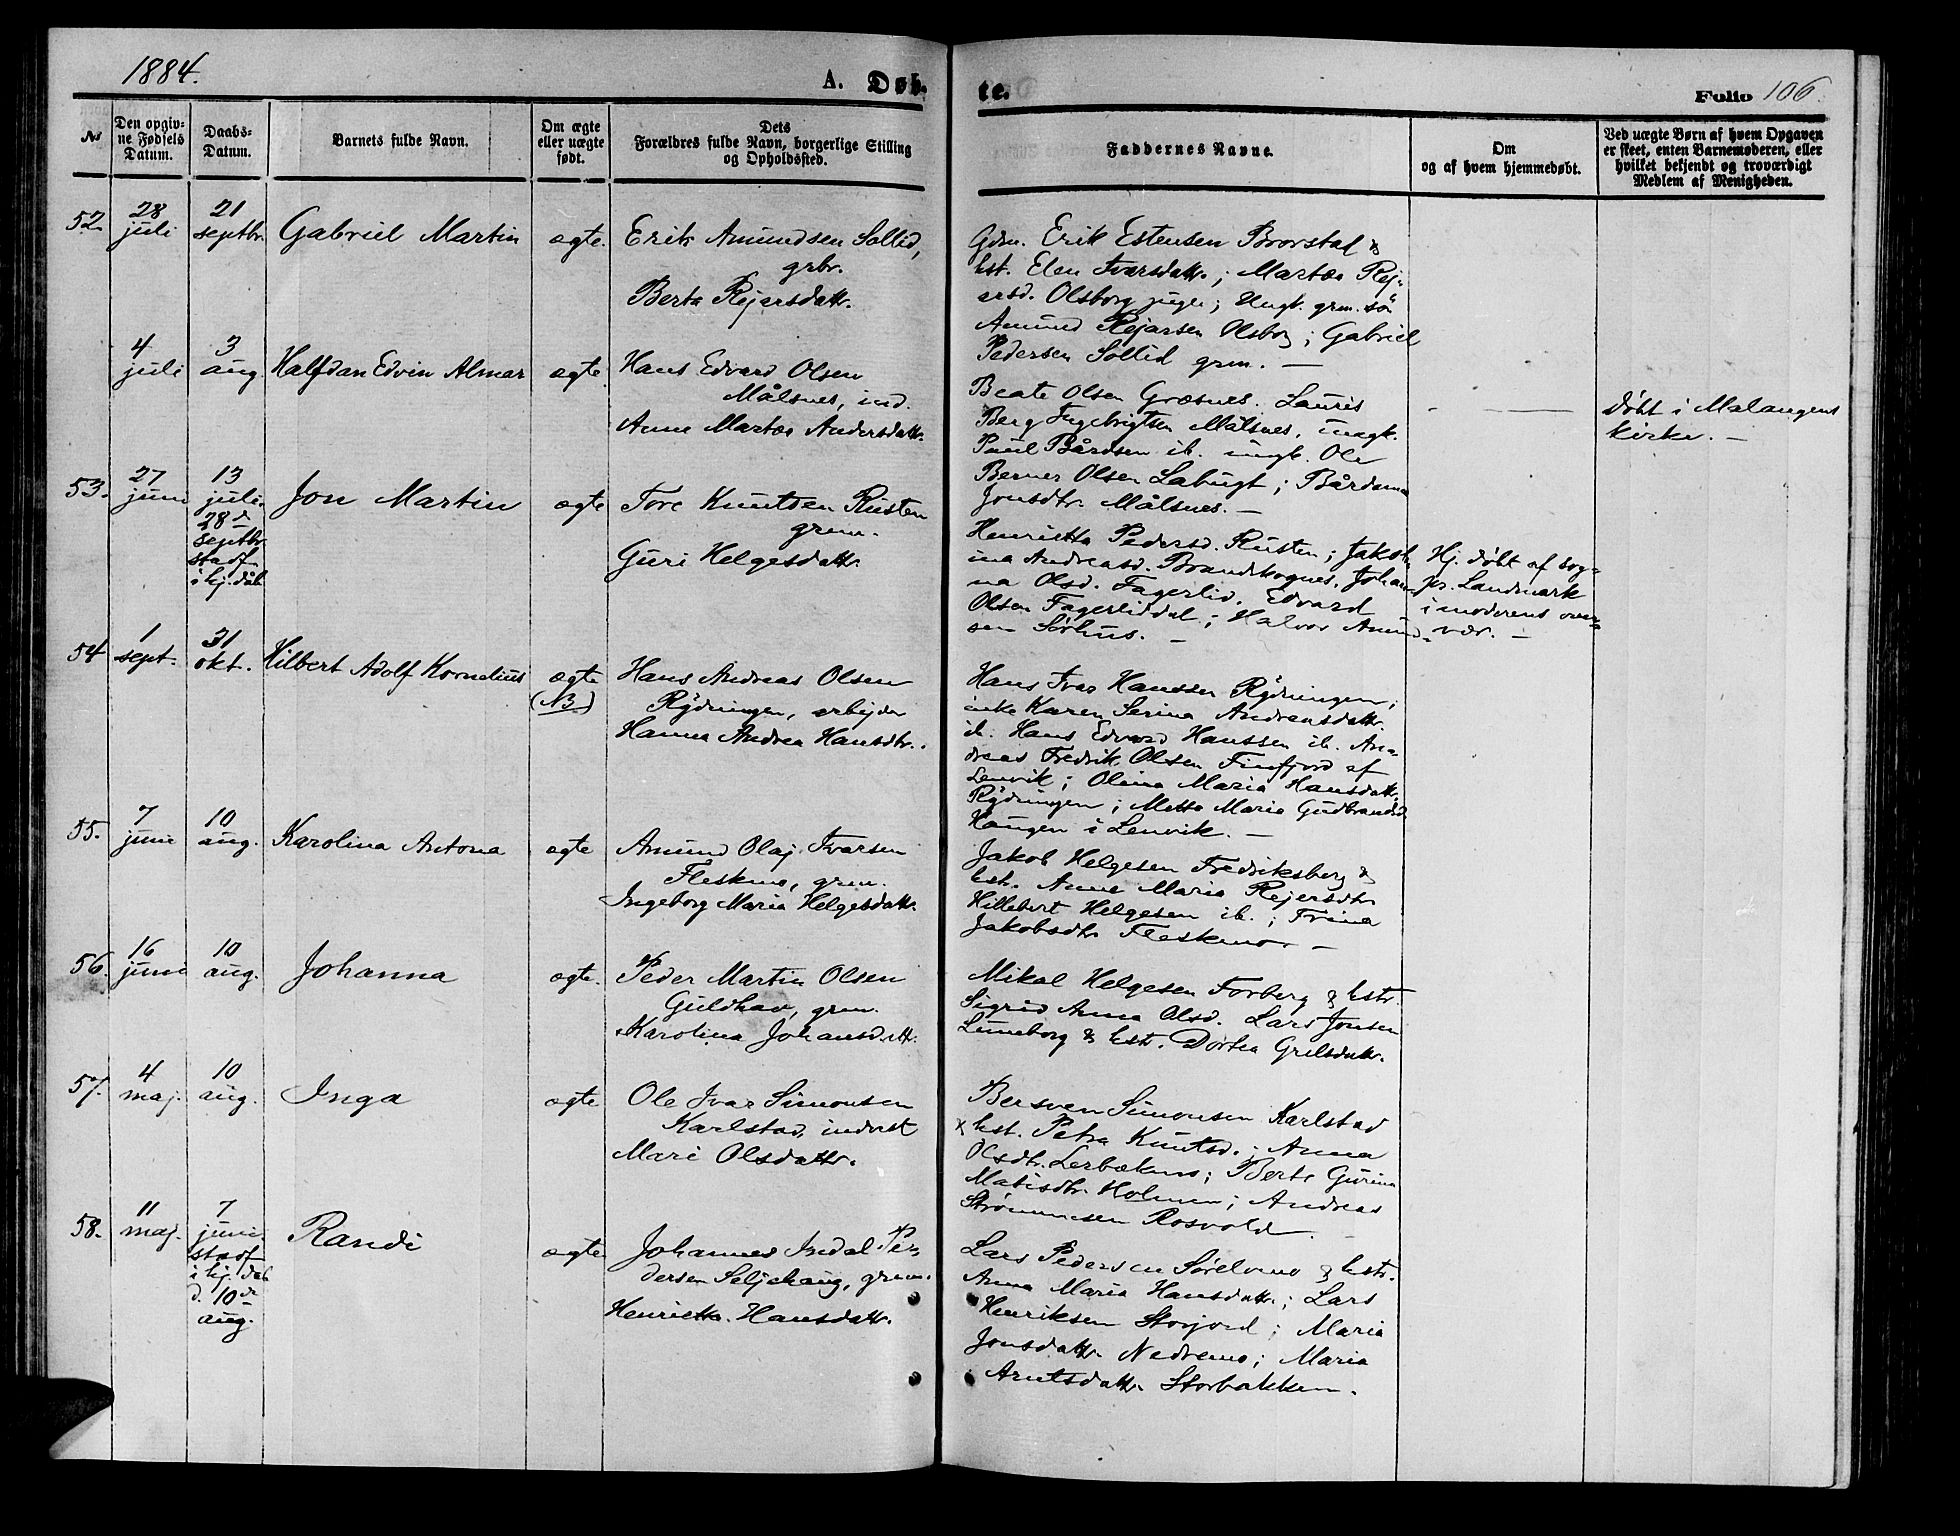 1884.
A. Døb-
te.
Folio 106.
No
Den opgiv-
ne Fødsels
Datum.
Daabs-
Datum.
Barnets fulde Navn.
Om ægte
eller uægte
født.
Dets
Forældres fulde Navn, borgerlige Stilling
og Opholdssted.
Faddernes Navne.
Om
og af hvem hjemmedøbt.
Ved uægte Børn af hvem Opgaven
er skeet, enten Barnemoderen, eller
hvilket bekjendt og troværdigt
Medlem af Menigheden.
52
28
juli
21
septbr.
Gabriel Martin
ægte.
Erik Amundsen Sollid,
grbr.
Berte Rejersdattr.
Gdm. Erik Estensen Brorstad &
kst. Elen Ivarsdattr.; Martea Rej-
ersd. Olsborg pige; Ungk. grm. sö
Amund Rejarsen Olsborg; Gabriel
Pedersen Sollid grm. —
4
juli
3
aug.
Halfdan Edvin Almar
ægte
Hans Edvard Olsen
Målsnes, ind.
Anne Martea Andersdattr.
Beate Olsen Græsnes. Lauris
Berg Ingebrigtsen Målsnes, ungk.
Paul Bårdsen ib. ungk. Ole
Berner Olsen Labugt; Bårdine
Jonsdtr. Målsnes. —
døbt i Malangens
kirke. —
53.
27
juni
13
juli
28de
septbr
stadf
i hj. dåb
Jon Martin
ægte
Tore Knutsen Rusten
grm.
Guri Helgesdattr.
Henrietta Pedersd. Rusten; Jakob-
ina Andreasd. Brandskognes, Johan-
na Olsd. Fagerlid, Edvard
Olsen Fagerliddal; Halvor Amund-
sen Sørhus. —
Hj. døbt af sog-
pr. Landmark
i moderens over-
vær. —
54
1
sept.
31
okt.
Hilbert Adolf Kornelius
ægte
(N3)
Hans Andreas Olsen
Rydningen, arbejder
Hanna Andrea Hansdtr.
Hans Ivar Hanssen Rydningen;
enke Karen Serina Andreasdattr.
ib. Hans Edvard Hanssen ib. An-
dreas Fredrik Olsen Finfjord af
Lenvik; Olina Maria Hansdattr.
Rydningen; Mette Maria Gudbrandsd
Haugen i Lenvik. —
55.
7
juni
10
aug.
Karolina Antona
ægte
Amund Olaj Ivarsen
Fleskmo, grm.
Ingeborg Maria Helgesdattr.
Jakob Helgesen Fredriksberg &
kst. Anne Maria Rejersdtr
Hillebert Helgesen ib.; Trina
Jakobsdtr Fleskmo —
56.
16
juni
10
aug.
Johanna
ægte.
Peder Martin Olsen
Guldhav, grm.
Karolina Johansdattr.
Mikal Helgesen Forberg & kstr.
Sigrid Anna Olsd. Lars Jonsen
Luneborg & kstr. Dortea Grelsdattr.
57.
4
maj.
10
aug.
Inga
ægte
Ole Ivar Simonsen
Karlstad, inderst
Mari Olsdattr.
Bersven Simonsen Karlstad
& kst. Petra Knutsd.; Anna
Olsdtr. Lerbækmo; Berte Gurina
Matisdtr. Holmen; Andreas
Strømmesen Rosvold
58.
11
maj.
7
juni
stadf
i hj. dåb
d. 10de
aug.
Randi
ægte
Johannes Indal Pe-
dersen Seljehaug, grm.
Henrietta Hansdattr.
Lars Pedersen Sørelvmo & kstr.
Anna Maria Hansdattr.; Lars
Henriksen Storjord; Maria
Jonsdattr. Nedremo; Maria
Arntsdattr. Storbakken.